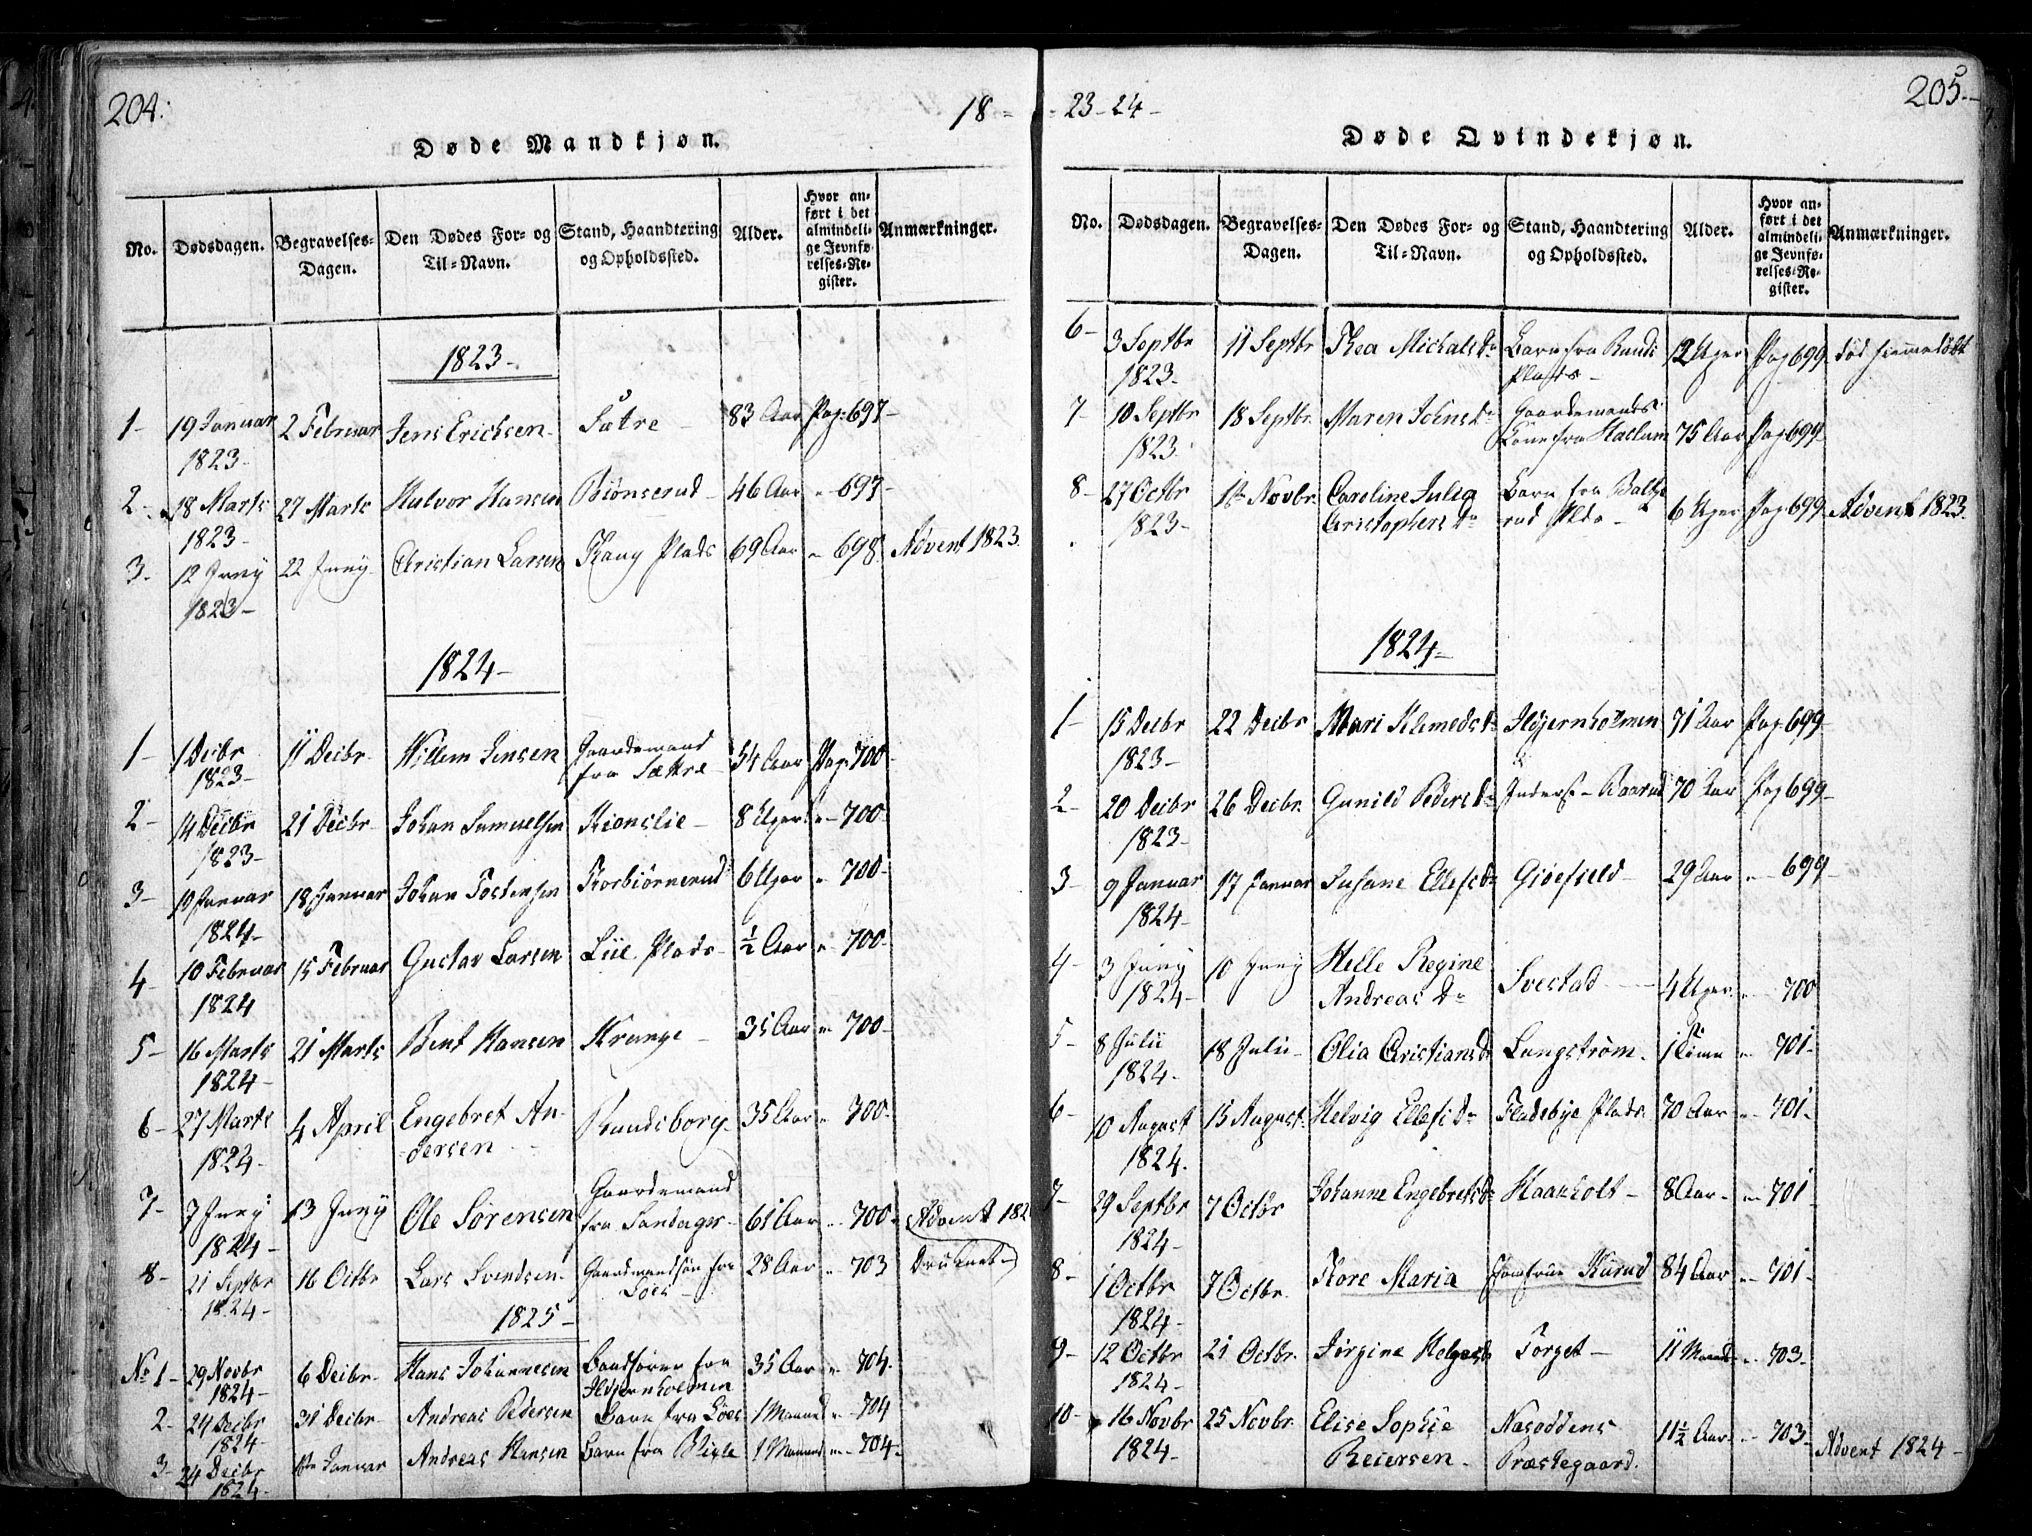 204.
18 -
Døde Mandkjøn.
No. Dødsdagen. Begravelses-Dagen. Den Dødes For- og Til-Navn. Stand, Haandtering og Opholdssted. Alder. Hvor anført i det almindelige Jevnførelses-Register. Anmærkninger.
1823-
1- 19 Januar 2 Februar Jens Erichsen Sætre 83 Aar Pag: 697-
1823-
2- 18 Marts 27 Marts Halvor Hansen Biønserud- 46 Aar " 697-
1823-
3- 12 Juny 22 Juny- Christian Larsen Plads 69 Aar " 698- Advent 1823
1823-
1824-
1- 1 Decbr 11 Decbr- Willem Jensen Gaardemand 54 Aar Pag: 700-
1823- fra Sættre-
2- 14 Decbr 21 Decbr- Johan Samuelsen Kionslie- 8 Uger " 700-
1823-
3- 10 Januar 18 Januar Johan Tostensen Torbiørnerud 6 Uger " 700-
1824-
4- 10 Februar 15 Februar Gustav Larsen Liie Plads- ½ Aar " 700-
1824
5- 16 Marts 21 Marts Bent Hansen Krange- 35 Aar " 700-
1824-
6- 27 Marts 4 April Engebret An- Randsborg- 35 Aar " 700-
1824- -dersen
7- 7 Juny 13 Juny Ole Sørensen Gaardemand
1824- fra Sandager- 61 Aar " 700- Advent 182
8- 21 Septbr 16 Octbr Lars Svendsen- Gaardmandsøn fra 28 Aar " 703 Druknet-
1824- Løes-
1825-
No 1- 29 Novbr 6 Decbr- Hans Johannesen fra 35 Aar " 704-
1824- Ildjernholmen
2- 24 Decbr 31 Decbr- Andreas Pedersen Barn fra Løes 1 Maaned " 704
1824-
3- 24 Decbr 1ste Januar Andreas Hansen Barn fra 1 Maaned " 704-
1824-
205-
23-24-
Døde Qvindekjøn.
No. Dødsdagen. Begravelses-Dagen. Den Dødes For- og Til-Navn. Stand, Haandtering og Opholdssted. Alder. Hvor anført i det almindelige Jevnførelses-Register. Anmærkninger.
6- 3 Septbr 11 Septbr Thea Michalsdr Barn fra Rundi 12 Uger Pag 699- død hiemmedøbt
1823- Plads-
7- 10 Septbr 18 Septbr Maren Johnsdr Gaardemands
1823- Kone fra Hallum 75 Aar Pag 699-
8- 27 Octbr 1te Novbr. Caroline Julia Barn fra 6 Uger Pag 699- Advent 1823
1823- Christophersdr rud Plds-
1824-
1- 15 Decbr 22 Decbr Mari Klemedsdr Ildjernholmen 71 Aar Pag 699-
1823-
2- 20 Decbr 26 Decbr Gunild Pedersdr Inderst- Aarud 70 Aar Pag 699-
1823-
3- 9 Januar 17 Januar Susane Ellefsdr Giøefield- 29 Aar " 699-
1824-
4- 3 Juny 10 Juny Helle Regine Svestad- 4 Uger- " 700
1824- Andreasdr
5- 8 Julii 18 Julii- Olia Christiansdr Langstrøm- 1 Time " 701-
1824-
6- 10 August 15 August- Helvig Ellefsdr Fladebye Plads- 70 Aar " 701-
1824.
7- 29 Septbr 7 Octbr Johanne Engebretsdr Haakholt- 8 Aar- " 701
1824-
8- 1 Octbr 7 Octbr. Tore Maria Jomfrue Hurud 84 Aar " 701-
1824-
9- 12 Octbr 21 Octbr- Jørgine Helgesdr Torget- 11 Maan " 703-
1824-
10- 16 Novbr 25 Novbr. Elise Sophie Nesoddens 11½ Aar- " 703-
1824- Reiersen- Præstegaard- Advent 1824-